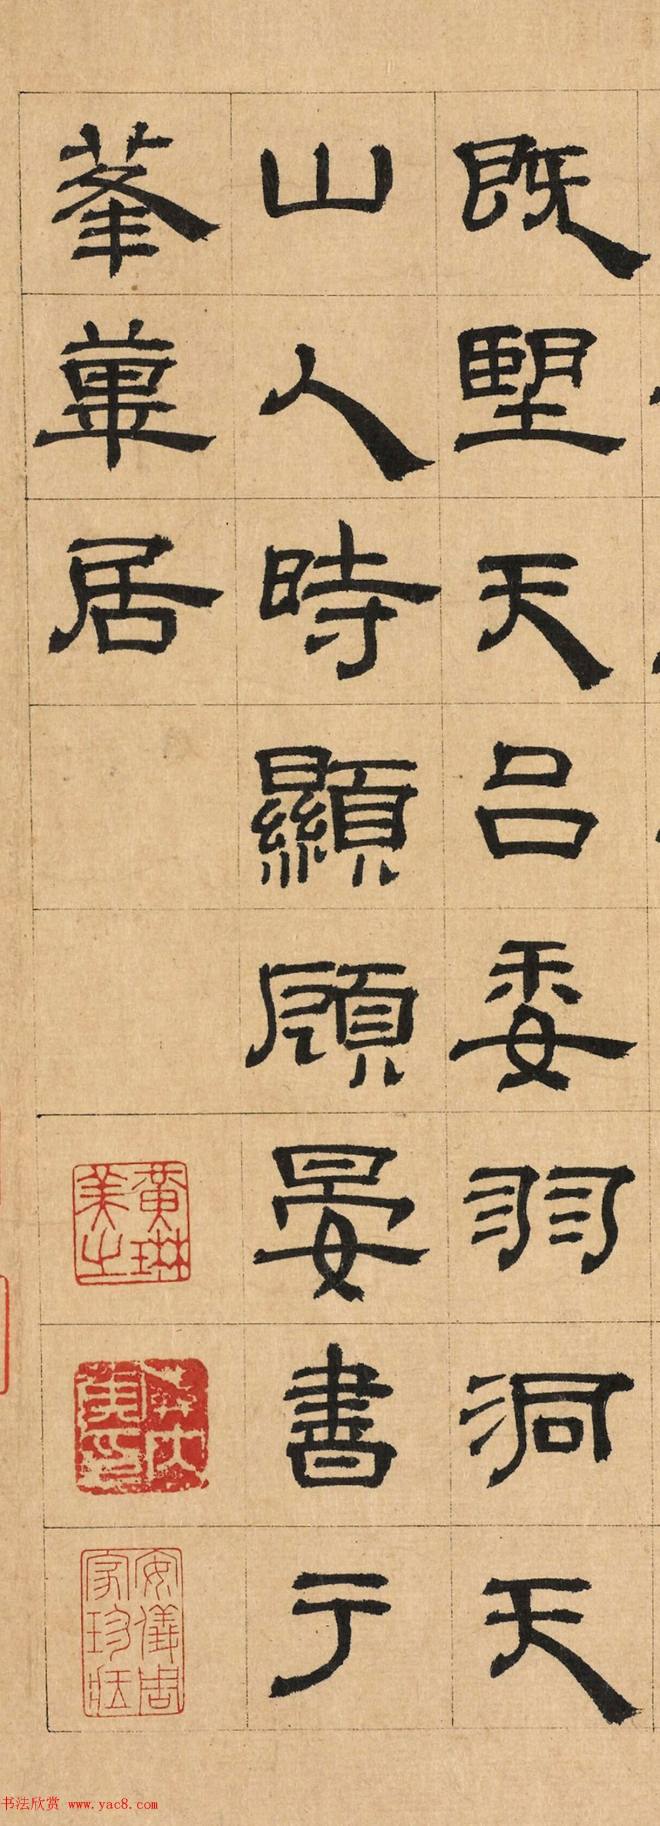 既朢天台委羽洞天
山人時顯顧晏書于
莑蓽居
黃琳美之
安儀周家珍藏
书法欣赏 www.yac8.com